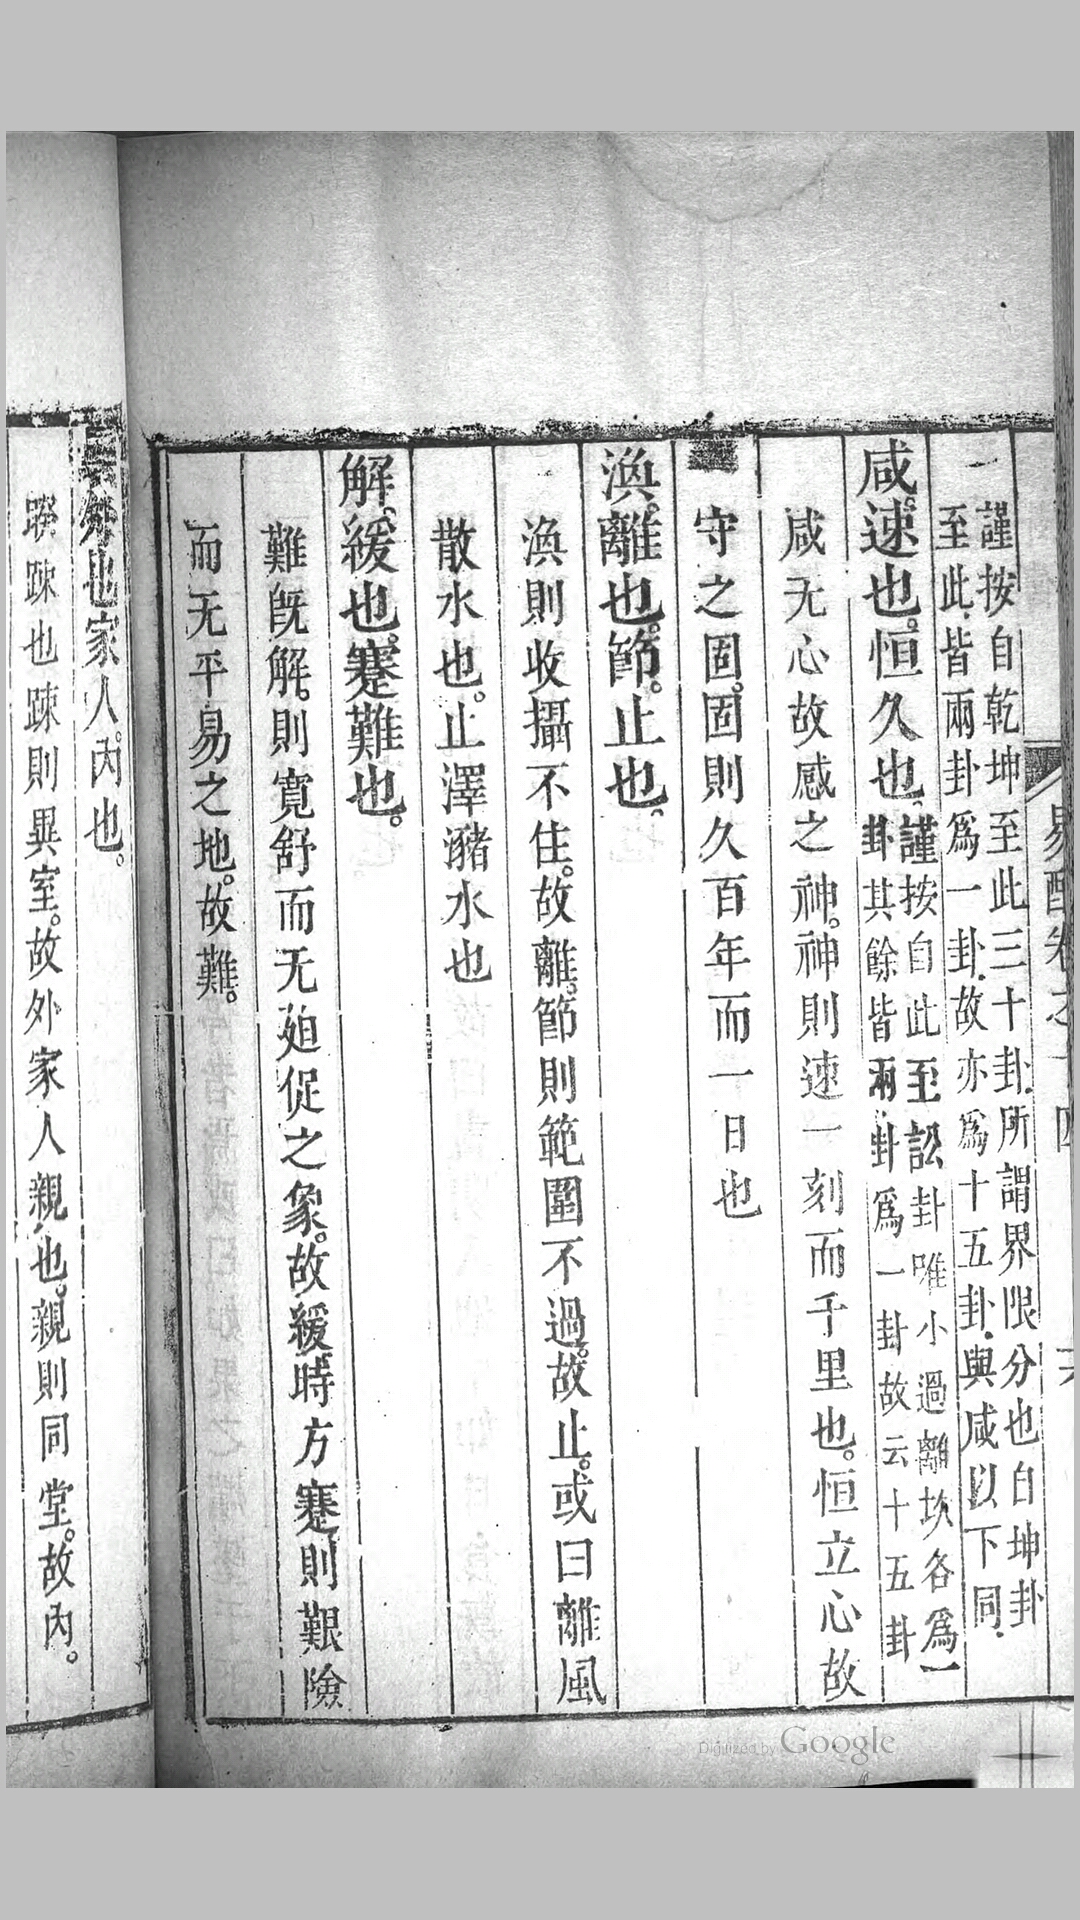 易酌卷之十四
謹按自乾坤至此三十卦所謂界限分也自坤卦
至此皆兩卦爲一卦故亦爲十五卦與咸以下同
咸。速也。恒久也。
謹按自此至訟卦唯小過離坎各爲一
卦其餘皆兩卦爲一卦故云十五卦
咸无心故感之神。神則速一刻而千里也。恒立心故
守之固。固則久百年而一日也
渙。離也。節。止也。
渙則收攝不住。故離。節則範圍不過。故止。或曰離風
散水也。止澤瀦水也
解。緩也。蹇難也。
難旣解。則寬舒而无廹促之象。故緩時方蹇則艱險
而无平易之地。故難。
外也家人。內也。
睽踈也踈則異室。故外家人親也。親則同堂。故內。
Digitized by Google